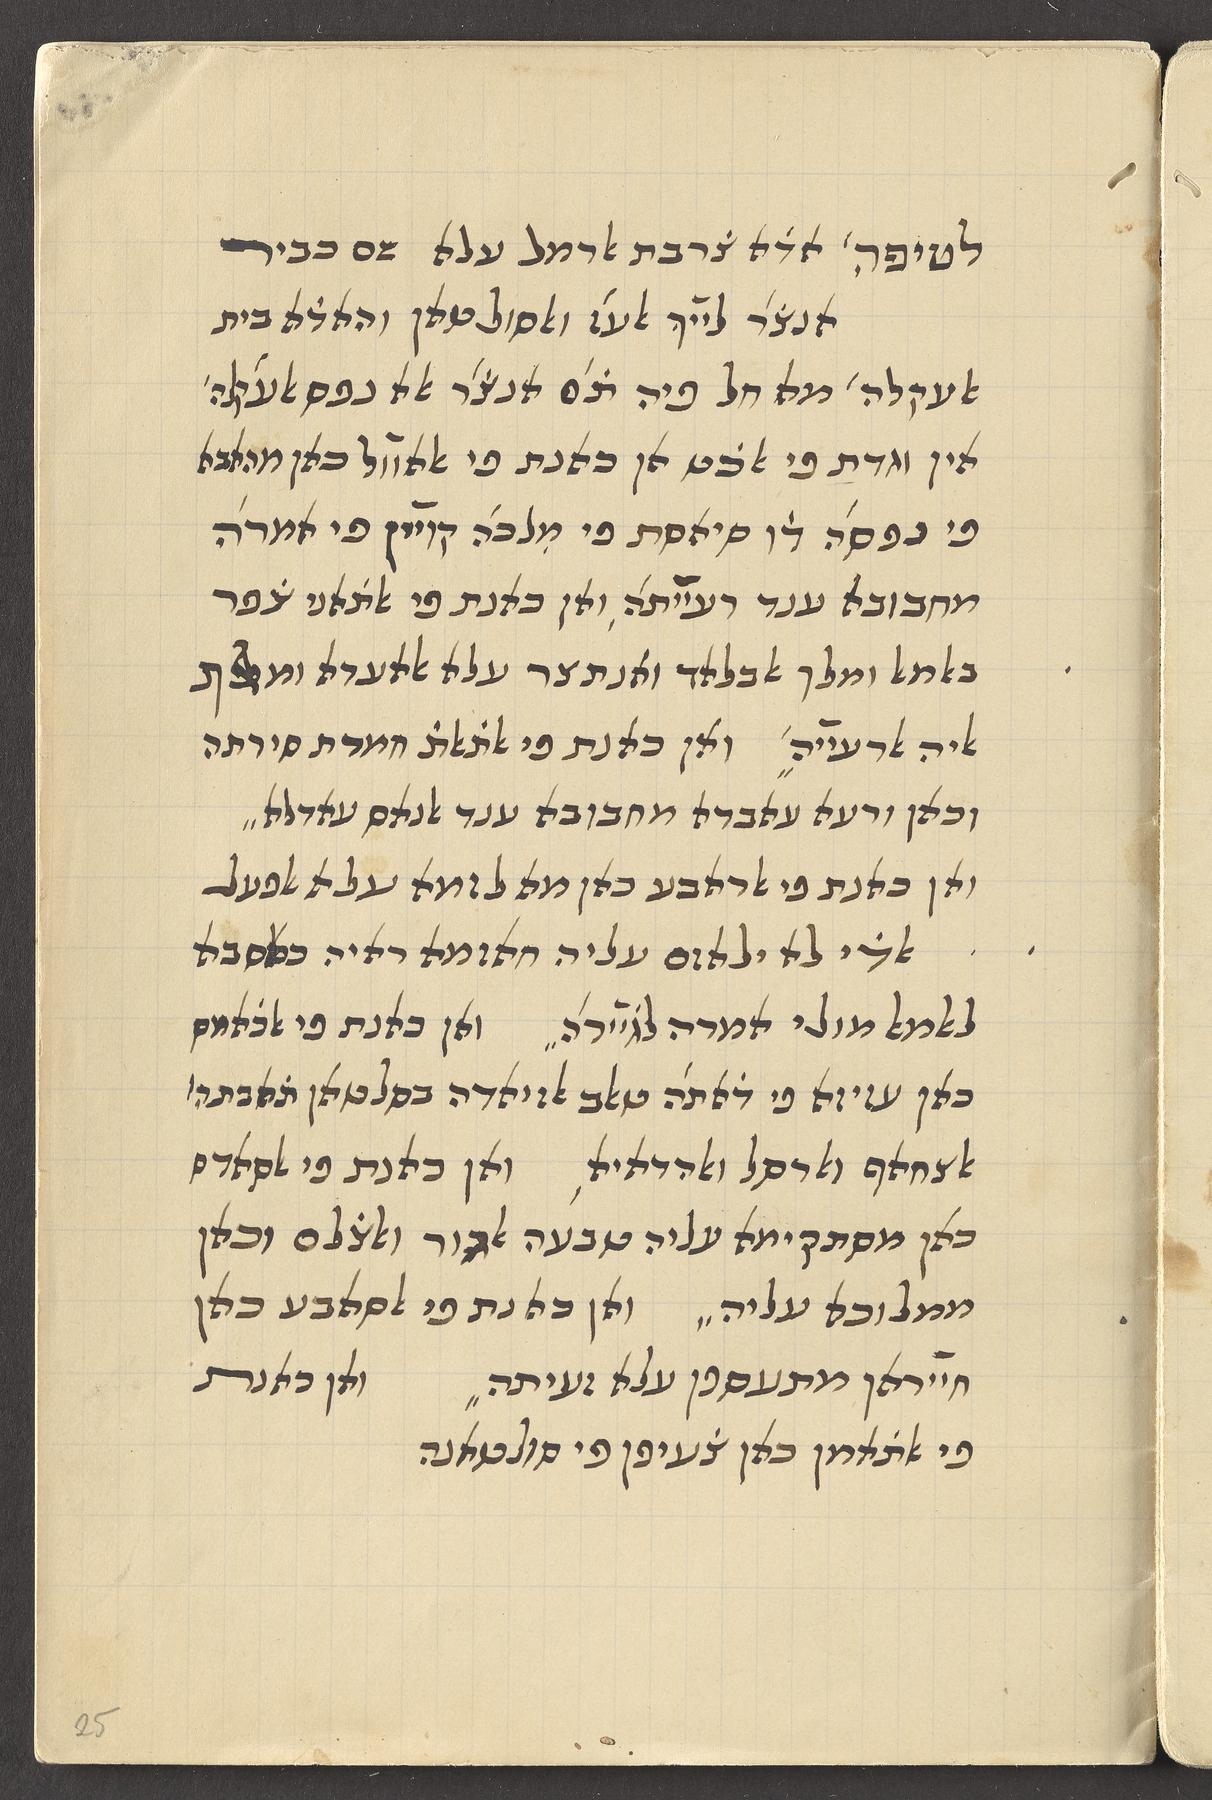 לטיפה׳ אד̇א צ̇רבת ארמל עלא אסם כביר
אנצ̇ר̇ לייך אעז ואסולטאן והאד̇א בית
אעקלה׳ מא חל פיה ת̇ם אנצ̇ר̇ אלא נפס אעקלה׳
אין וגדת פי אכ̇ט אן כאנת פי אלאוול כאן מהאבא
פי נפסה̇ ד̇ו סיאסת פי מלכה̇ קויין פי אמרה̇
מחבובא ענד רעייתה̇, ואן כאנת פי את̇אני צ̇פר
באמאל ומלך אבלאד ואנתצר עלא אלאעדא
איה ארעייה׳ ואן כאנת פי את̇אלת̇ חמדת סירתה
וכאן ורעא עאבדא מחבובא ענד אנאס עאדלא„
ואן כאנת פי אראבע כאן מא לזמא עלא אפעל
אלד̇י לא ילאזם עליה חאזמא ראיה כאסבא
לאמאל מולי אמרה לגיירה̇„ ואן כאנת פי אכ̇אמס
כאן עזיזא פי ד̇אתה̇ טאלב אזיאדה בסלטאן ת̇אבתה׳
אצחאף וארסל ואהדאיא, ואן כאנת פי אסאדס
כאן מסתקימא עליה טבעה אגור ואצ̇לם וכאן
ממלוכא עליה„ ואן כאנת פי אסאבע כאן
חייראן מתעספן עלא זעיתה„ ואן כאנת
פי את̇אמן כאן צ̇עיפן פי סולטאנה
25